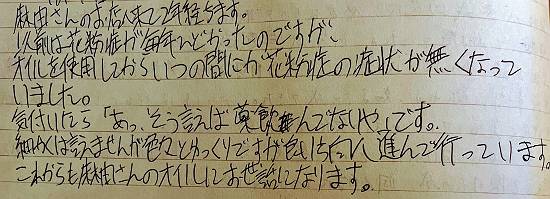 麻由さんのお店へ来て2年経ちます。
以前は花粉症が毎年ひどかったのですが、
オイルを使用してからいつの間にか花粉症の症状が無くなって
いました。
気付いたら「あっ、そう言えば薬飲んでないや」です。
細かくは言えませんが色々とゆっくりですが良い方に進んで行っています。
これからも麻由さんのオイルにお世話になります。